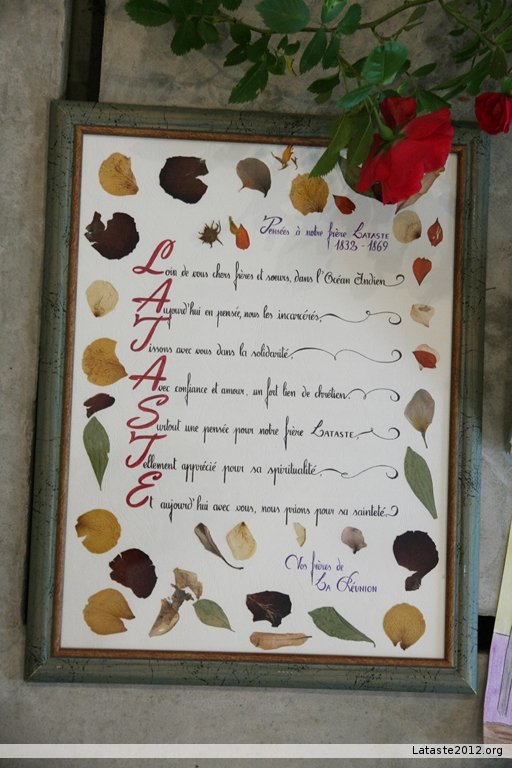 Pensées à notre frère LATASTE
1832 - 1869
Loin de vous chers frères et soeurs, dans l'Océan Indien
Aujourd'hui en pensée, nous les incarcérés,
Tissons avec vous dans la solidarité
Avec confiance et amour, un fort lien de chrétien
Surtout une pensée pour notre frère LATASTE,
Tellement apprécié pour sa spiritualité
Et aujourd'hui avec vous, nous prions pour sa sainteté
Vos frères de
LA RÉUNION
Lataste2012.org